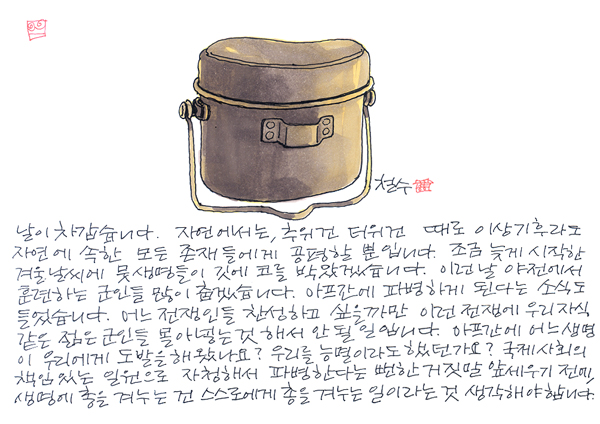 철수
날이 차갑습니다. 자연에서는, 추위건 더위건 때로 이상기후라도
자연에 속한 모든 존재들에게 공평할 뿐입니다. 조금 늦게 시작한
겨울날씨에 뭇생명들이 깃에 코를 박았겠습니다. 이런 날 야전에서
훈련하는 군인들 많이 춥겠습니다. 아프간에 파병하게 된다는 소식도
들었습니다. 어느 전쟁인들 찬성하고 싶을까만 이런 전쟁에 우리자식
같은 젊은 군인들 몰아넣는 것 해서 안 될 일입니다. 아프간에 어느 생명
이 우리에게 도발을 해왔나요? 우리를 능멸이라도 했던가요? 국제사회의
책임있는 일원으로 자청해서 파병한다는 뻔한 거짓말 앞세우기 전에,
생명에 총을 겨누는 건 스스로에게 총을 겨누는 일이라는 것 생각해야합니다.